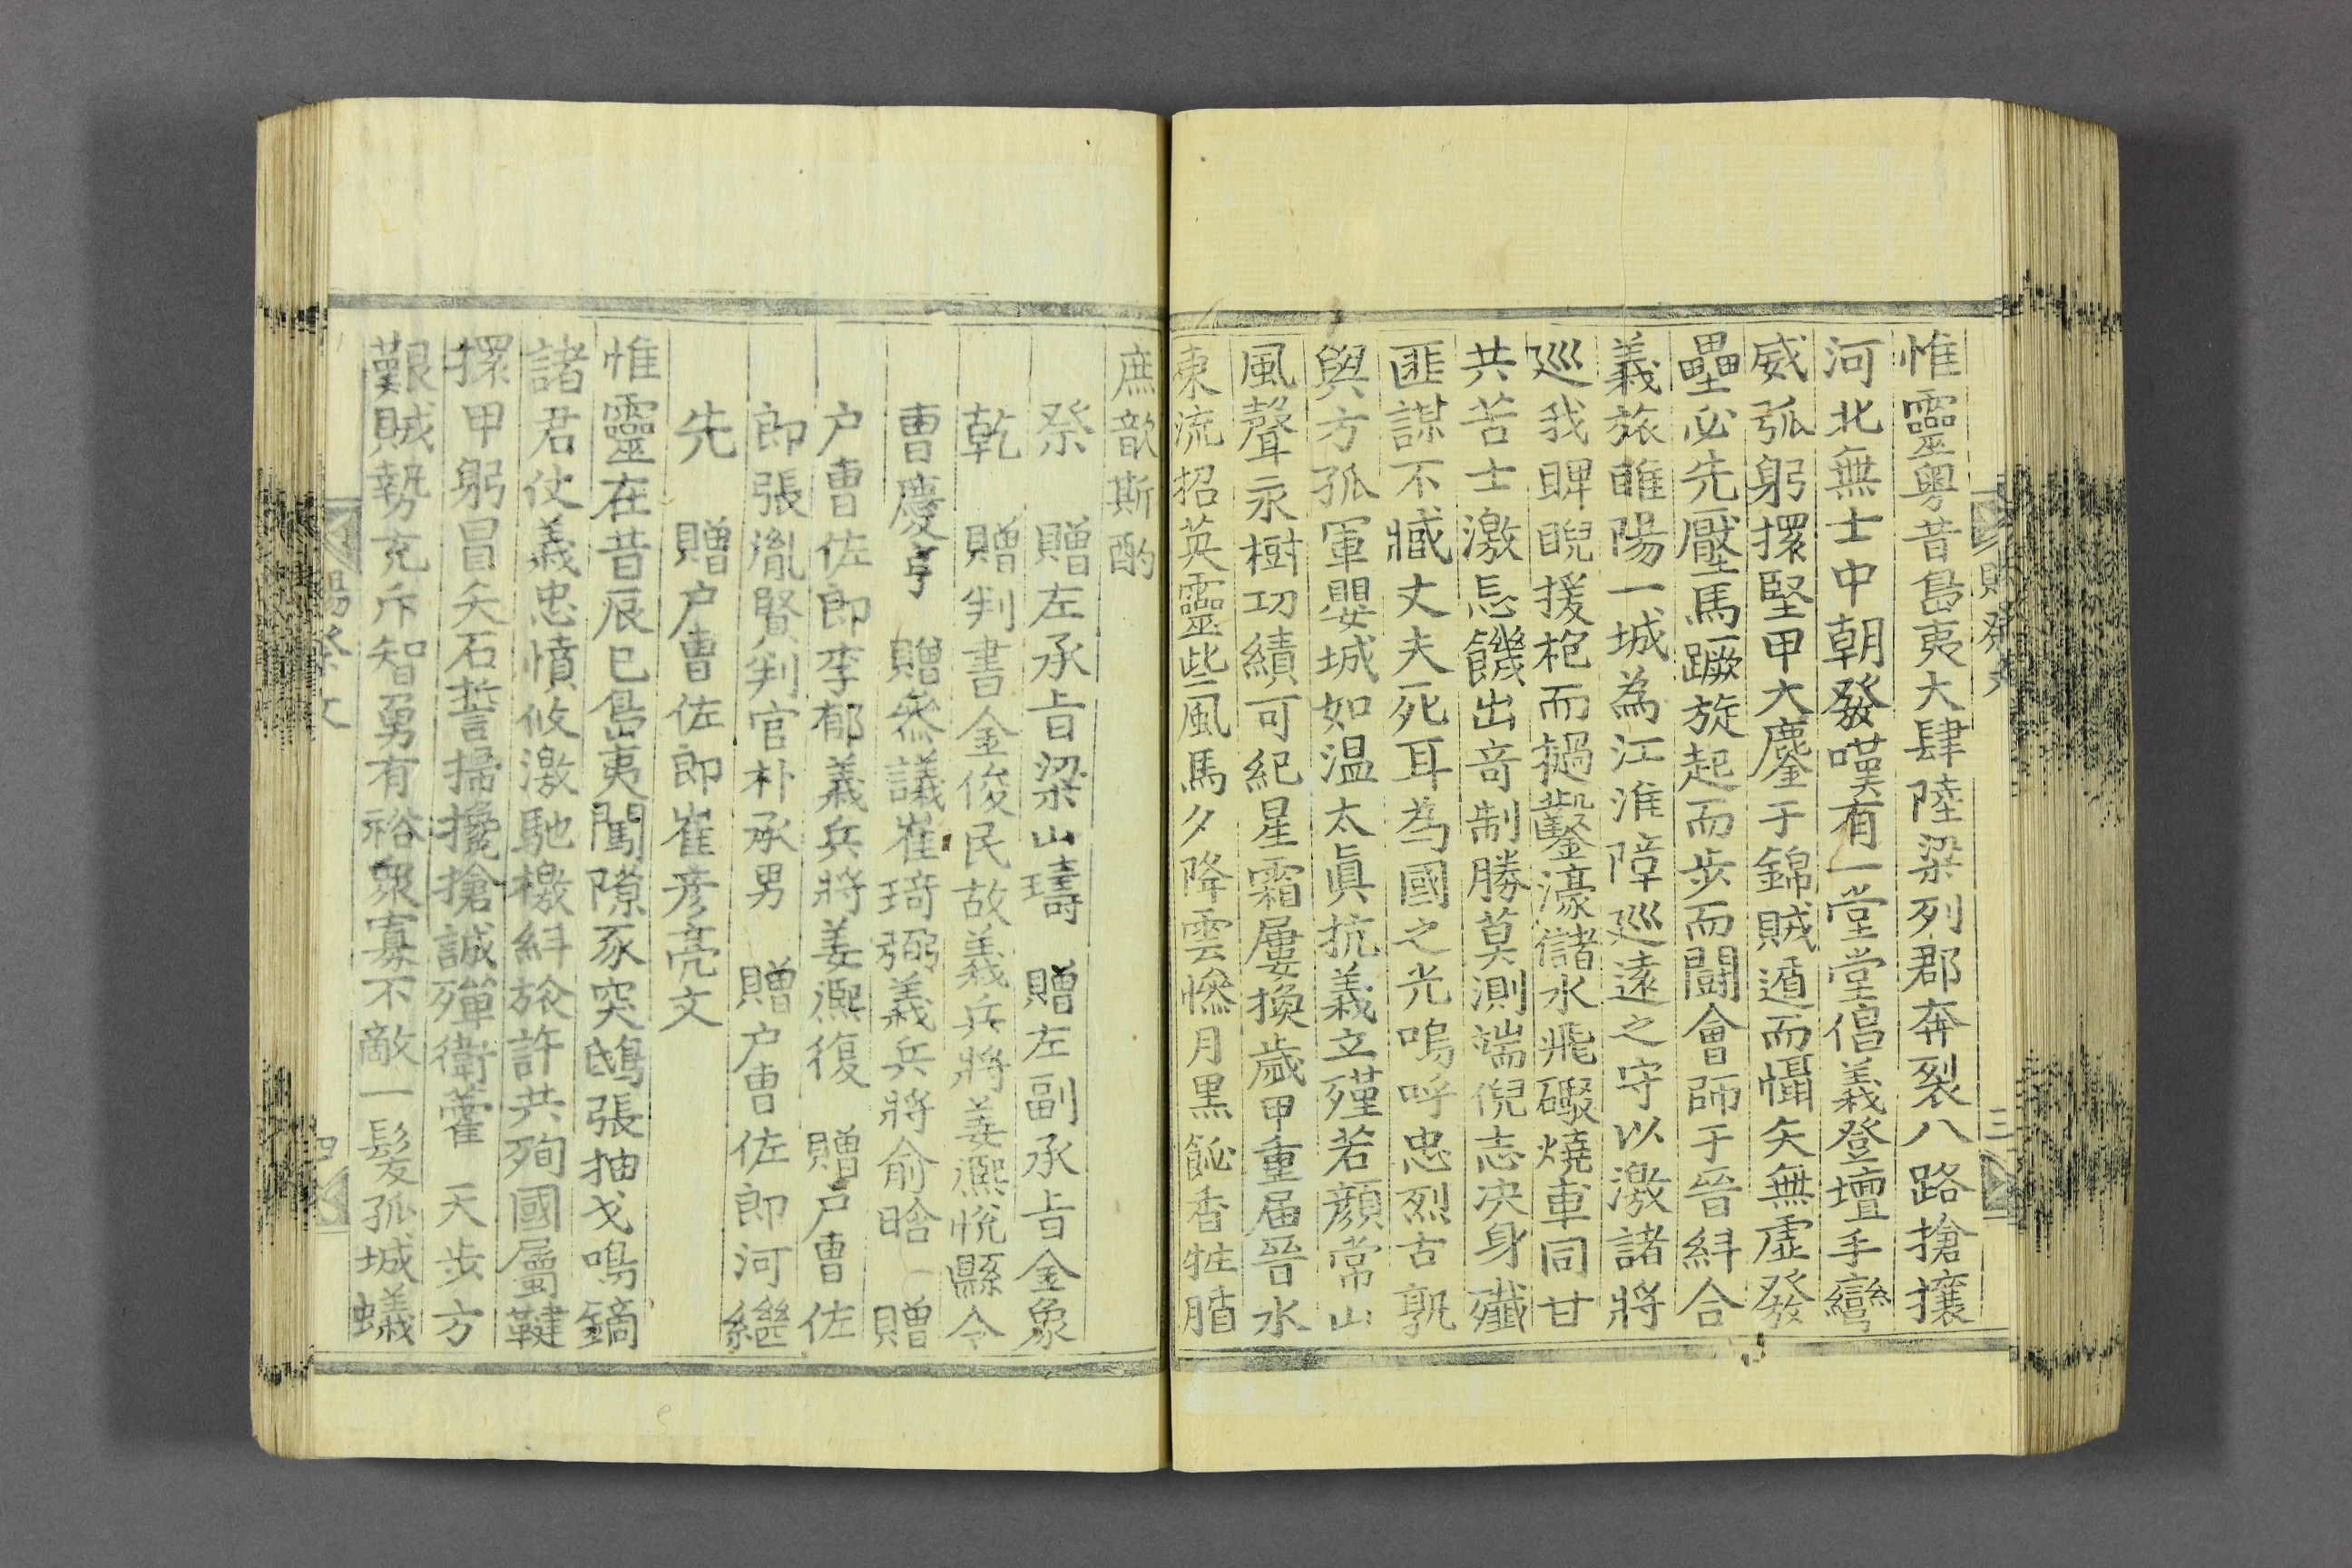 惟靈粤昔島夷大肆陸梁列郡奔裂八路搶攘
河北無士中朝發嘆有一堂堂倡義登壇手彎
威弧躬擐堅甲大鏖于錦賊遁而懾矢無虛發
壘必先壓馬蹶旋起而步而鬪會師于晉糾合
義旅睢陽一城為江淮障巡遠之守以激諸將
巡我睥睨援枹而撾鑿濠儲水飛礮燒車同甘
共苦士激忘饑出奇制勝莫測端倪志决身殲
匪謀不臧丈夫死耳為國之光嗚呼忠烈古孰
與方孤軍嬰城如温太眞抗義立殣若顔常山
風聲永樹功績可紀星霜屢換歲甲重届晉水
東流招英靈些風馬夕降雲慘月黑飶香牲腯
賜祭文
三
庶歆斯酌
祭　贈左承旨梁山璹　贈左副承旨金象
乾　贈判書金俊民故義兵將姜熙悅縣令
曺慶亨　贈參議崔琦弼義兵將俞晗　贈
户曹佐郎李郁義兵將姜熙復　贈户曹佐
郎張胤賢判官朴承男　贈户曹佐郎河繼
先　贈户曹佐郎崔彦亮文
惟靈在昔辰巳島夷闖隙豕突鴟張抽戈鳴鏑
諸君仗義忠憤攸激馳檄糾旅許共殉國屬鞬
擐甲躬冒矢石誓掃攙搶誠殫衛藿　天步方
艱賊勢充斥智勇有裕衆寡不敵一髮孤城蟻
賜祭文
四